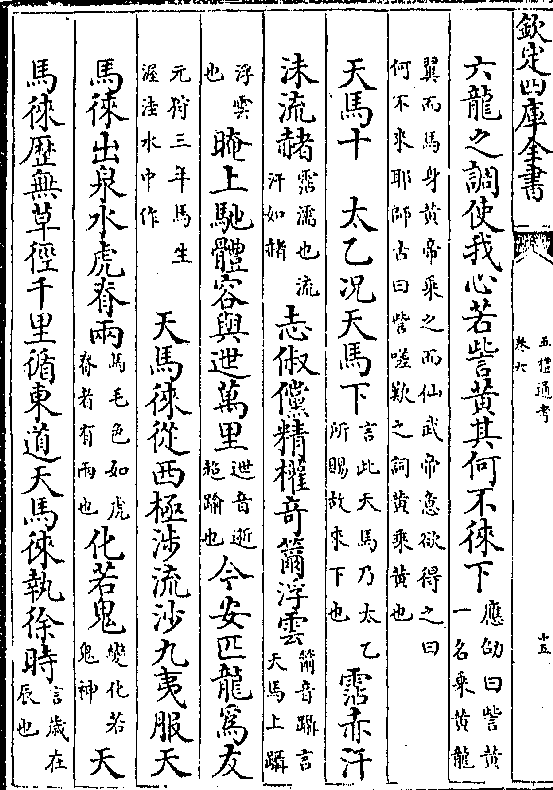 欽定四庫全書
五禮通考
卷六
十五
六龍之調使我心若訾黄其何不徠下
應劭曰訾黄
一名乘黄龍
翼而馬身黄帝乘之而仙武帝意欲得之曰
何不來耶師古曰訾嗟歎之詞黄乘黄也
天馬十　太乙况天馬下
言此天馬乃太乙
所賜故來下也
霑赤汗
沬流赭
霑濡也流
汗如赭
志俶儻精權奇籋浮雲
籋音躡言
天馬上躡
浮雲
也
晻上馳體容與迣萬里
迣音逝
超踰也
今安匹龍爲友
元狩三年馬生
渥洼水中作
天馬徠從西極涉流沙九夷服天
馬徠出泉水虎脊兩
馬毛色如虎
脊者有兩也
化若鬼
變化若
鬼神
天
馬徠歴無草徑千里循東道天馬徠執徐時
言歲在
辰也